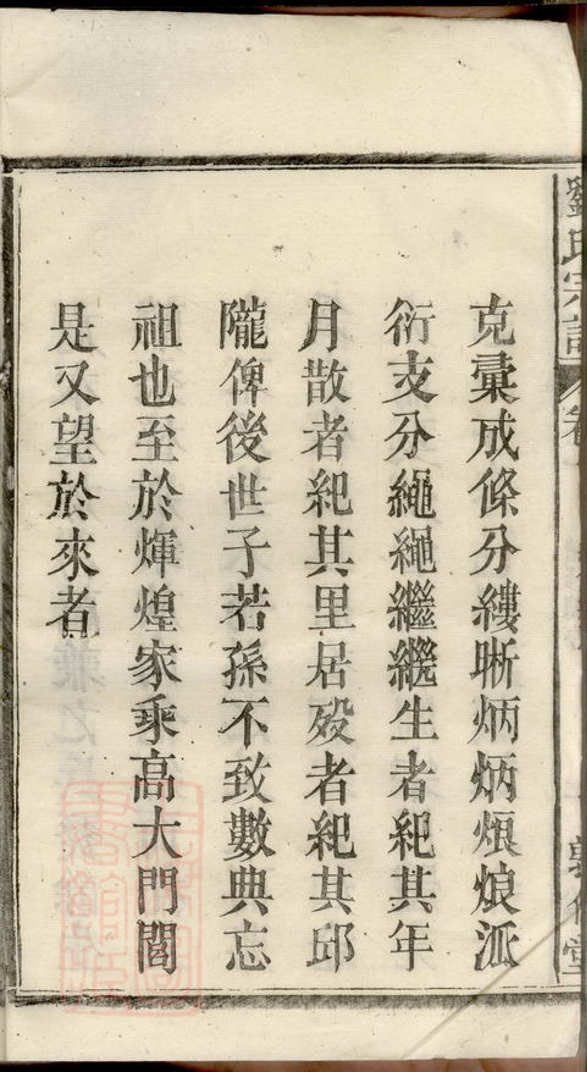 劉氏宗譜 卷
克彙成條分縷晰炳炳烺烺派
衍支分繩繩繼繼生者紀其年
月散者紀其里居歿者紀其邱
隴俾後世子若孫不致數典忘
祖也至於煇煌家乘高大門閭
是又望於來者